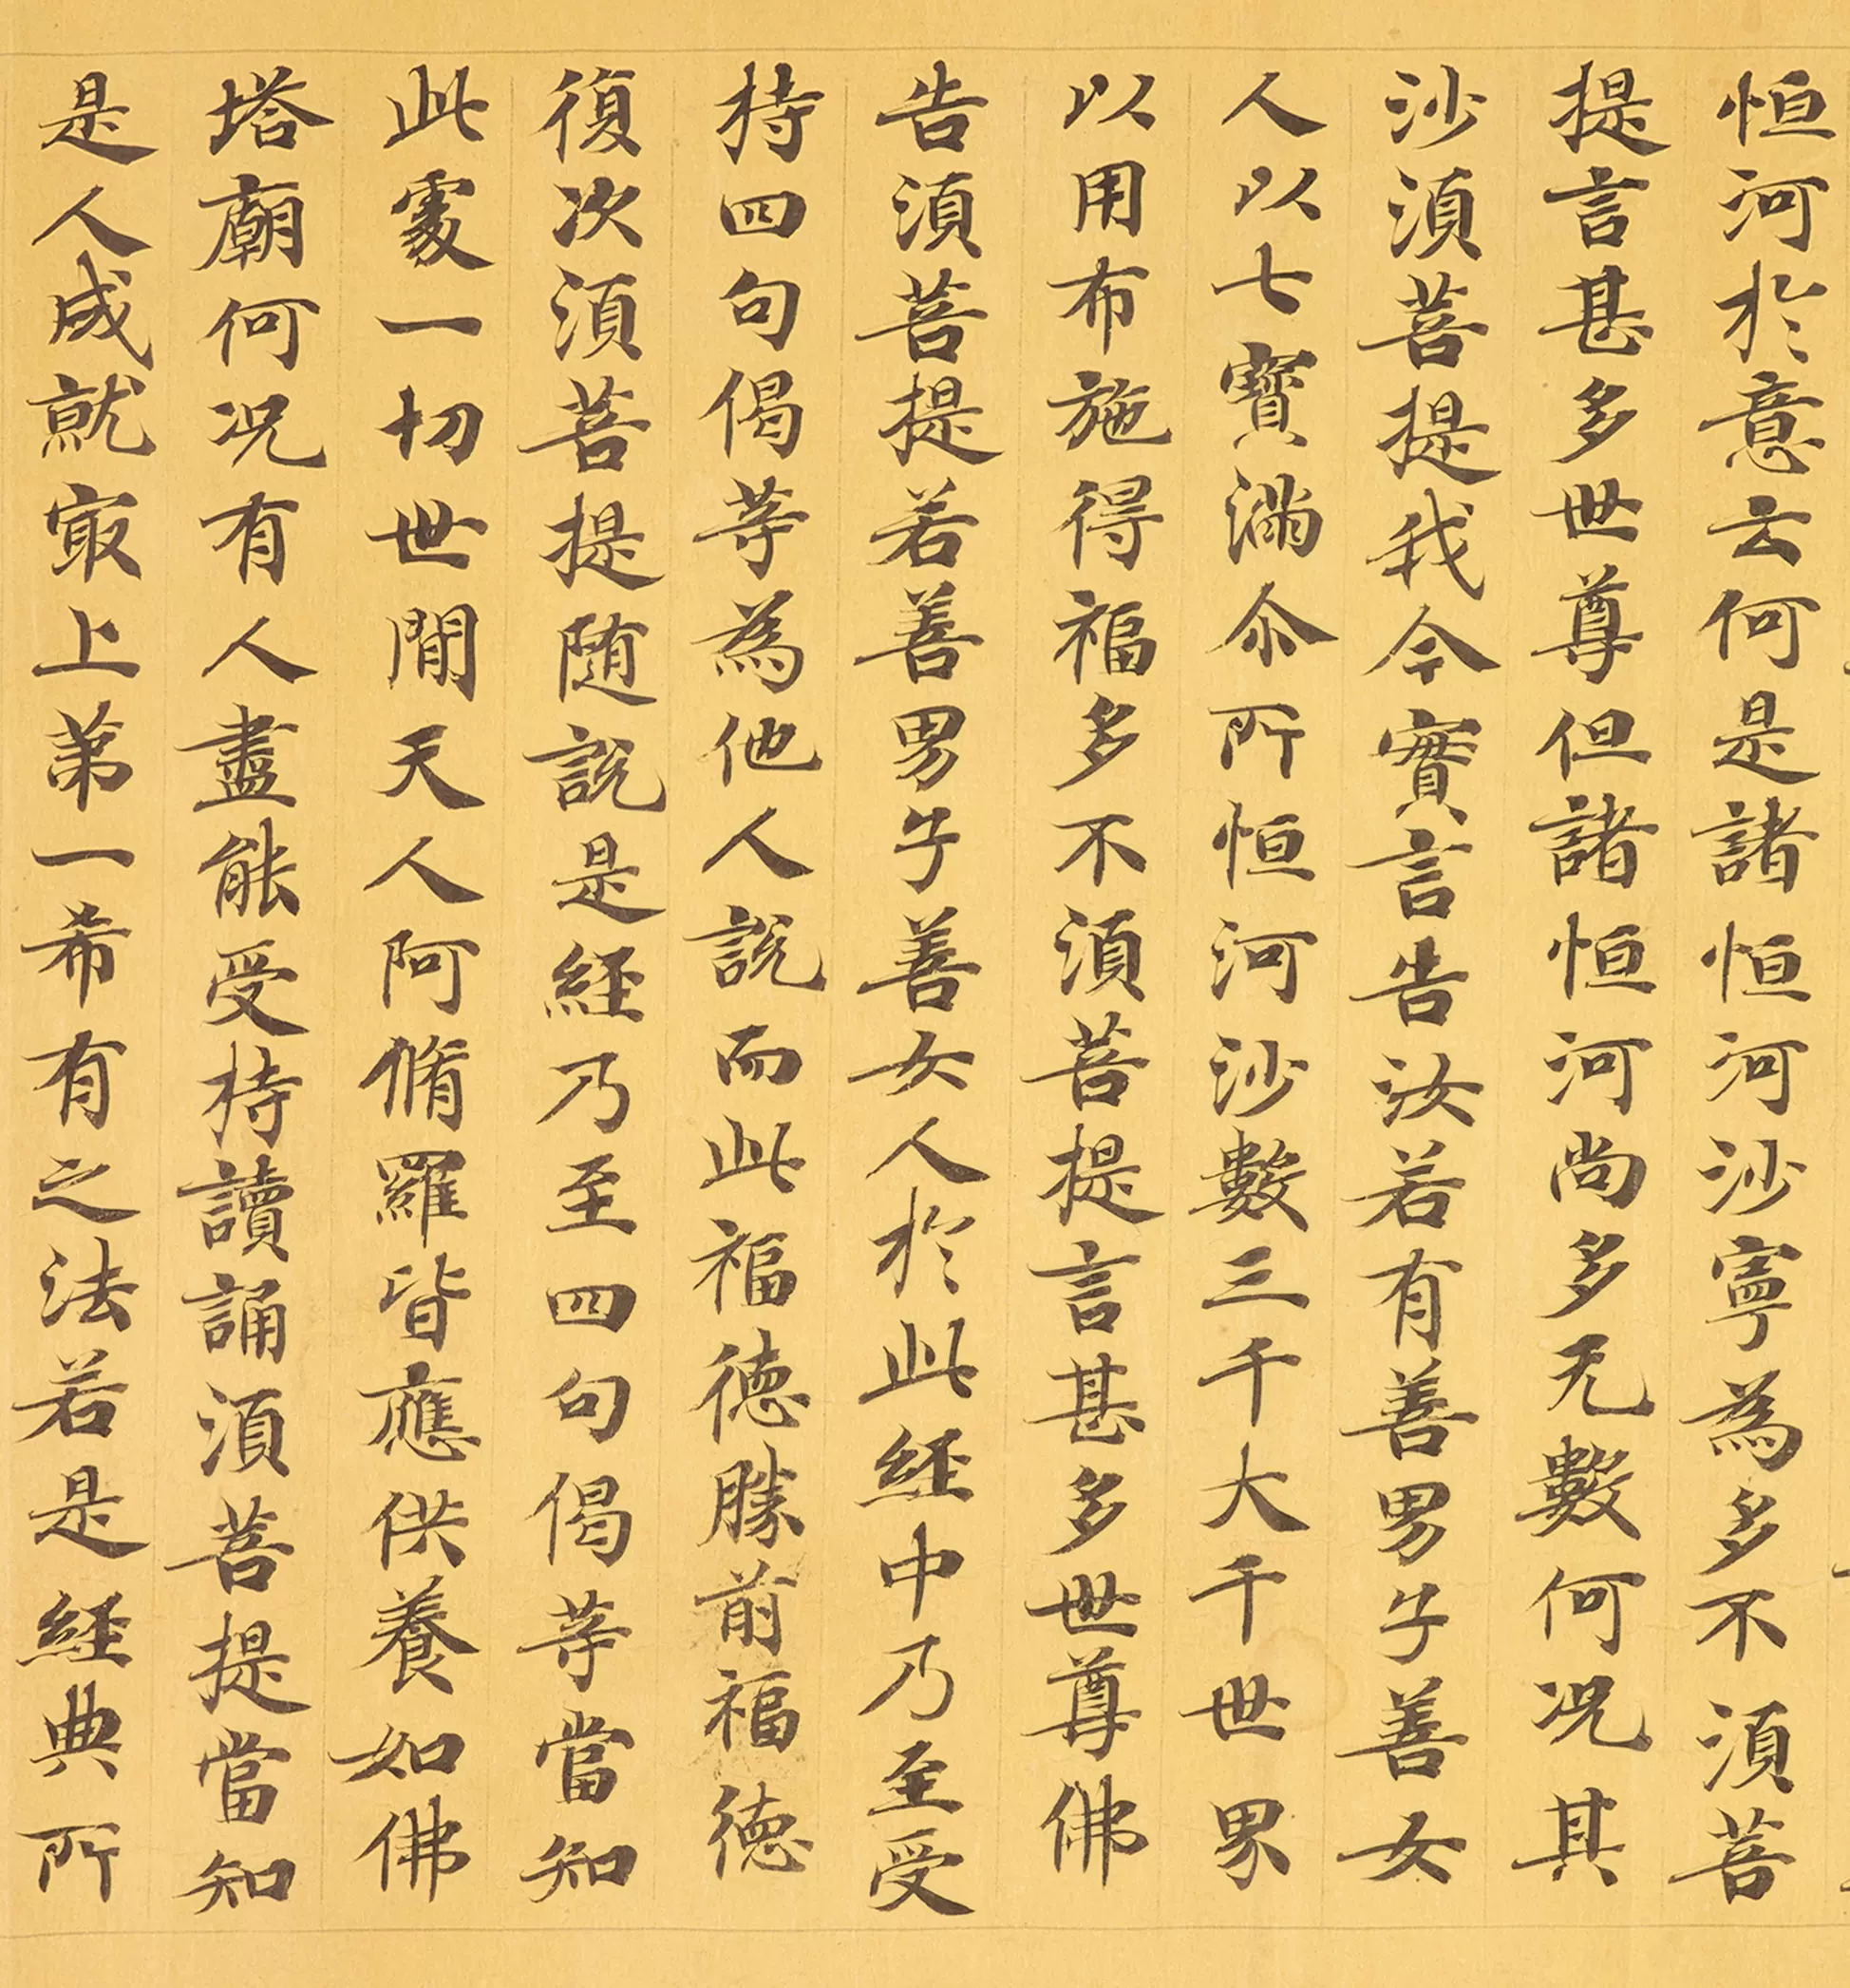 恒河於意云何是諸恒河沙寧為多不須菩
提言甚多世尊但諸恒河尚多无數何況其
沙須菩提我今實言告汝若有善男子善女
人以七寶滿尒所恒河沙數三千大千世界
以用布施得福多不須菩提言甚多世尊佛
告須菩提若善男子善女人於此経中乃至受
持四句偈等為他人說而此福德勝前福德
復次須菩提随說是経乃至四句偈等當知
此處一切世間天人阿脩羅皆應供養如佛
塔廟何況有人盡能受持讀誦須菩提當知
是人成就冣上第一希有之法若是経典所